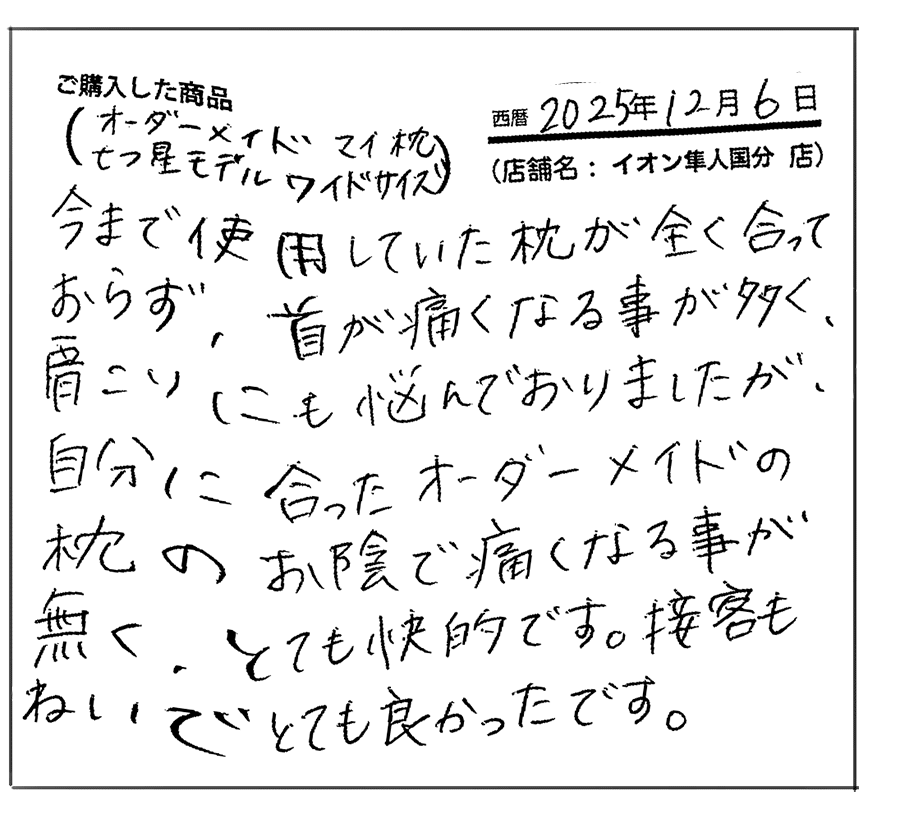 ご購入した商品
(オーダーメイド マイ枕
七つ星モデル ワイドサイズ)
西暦 2025年12月6日
(店舗名：イオン隼人国分 店)
今まで使用していた枕が全く合って
おらず、首が痛くなる事が多く、
肩こりにも悩んでおりましたが、
自分に合ったオーダーメイドの
枕のお陰で痛くなる事が
無く、とても快的です。接客も
ねいでとても良かったです。